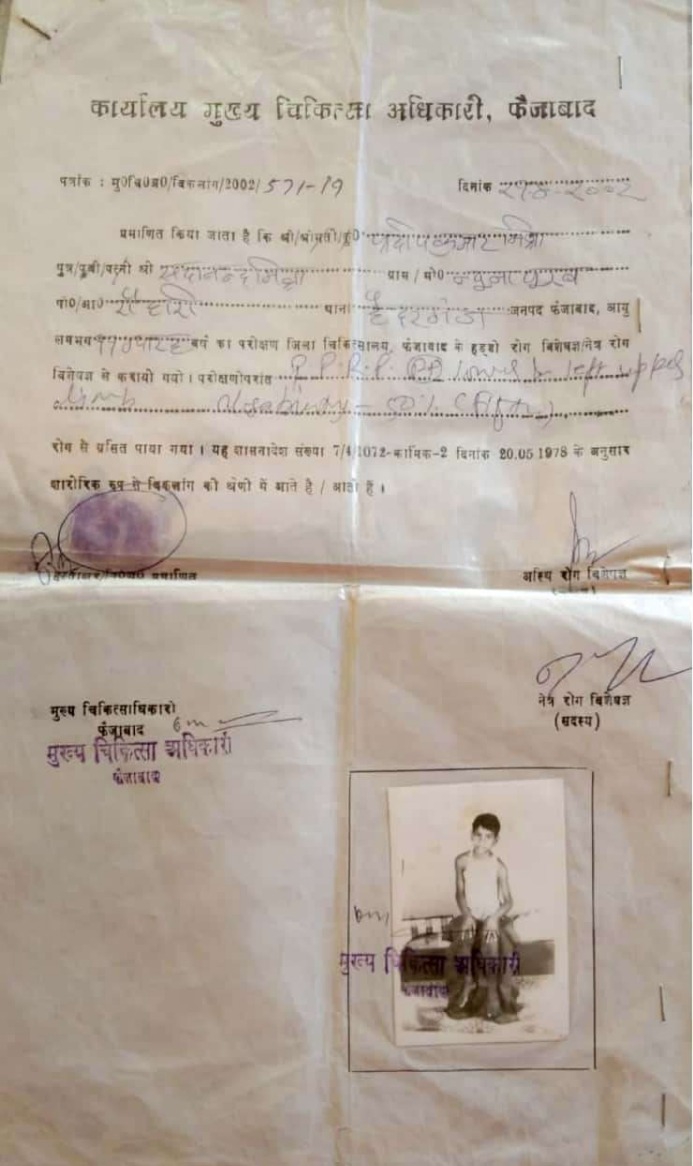 कार्यालय मुख्य चिकित्सा अधिकारी, फैजाबाद
पत्रांक : मु0चि0अ0/विकलांग/2002/ 571-19 दिनांक
प्रमाणित किया जाता है कि श्री/श्रीमती/कु0 प्रदीप कुमार मिश्रा
पुत्र/पुत्री/पत्नी श्री सदानन्द मिश्रा ग्राम / मो0 पूरब
पो0/आ0 थाना हैदरगंज जनपद फैजाबाद, आयु
लगभग वर्ष का परीक्षण जिला चिकित्सालय, फैजाबाद के हड्डी रोग विशेषज्ञ/नेत्र रोग
विशेषज्ञ से करायी गयी । परीक्षणोपरांत P.P.R.P. lower & left upper
limb 50% (Fifty)
रोग से ग्रसित पाया गया । यह शासनादेश संख्या 7/4/1072-कार्मिक-2 दिनांक 20.05 1978 के अनुसार
शारीरिक रूप से विकलांग की श्रेणी में आते है / आती हैं ।
प्रमाणित
अस्थि रोग विशेषज्ञ
नेत्र रोग विशेषज्ञ
(सदस्य)
मुख्य चिकित्साधिकारी
फैजाबाद
मुख्य चिकित्सा अधिकारी
फैजाबाद
मुख्य चिकित्सा अधिकारी
फैजाबाद